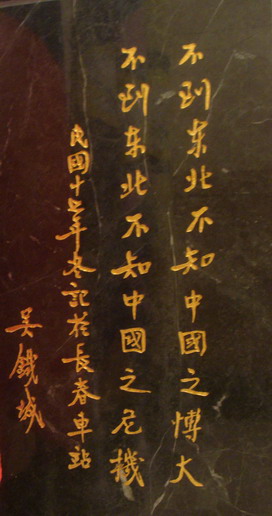 不到东北不知中國之博大
不到东北不知中國之危機
民國十七年冬記於長春車站
吴鐵城